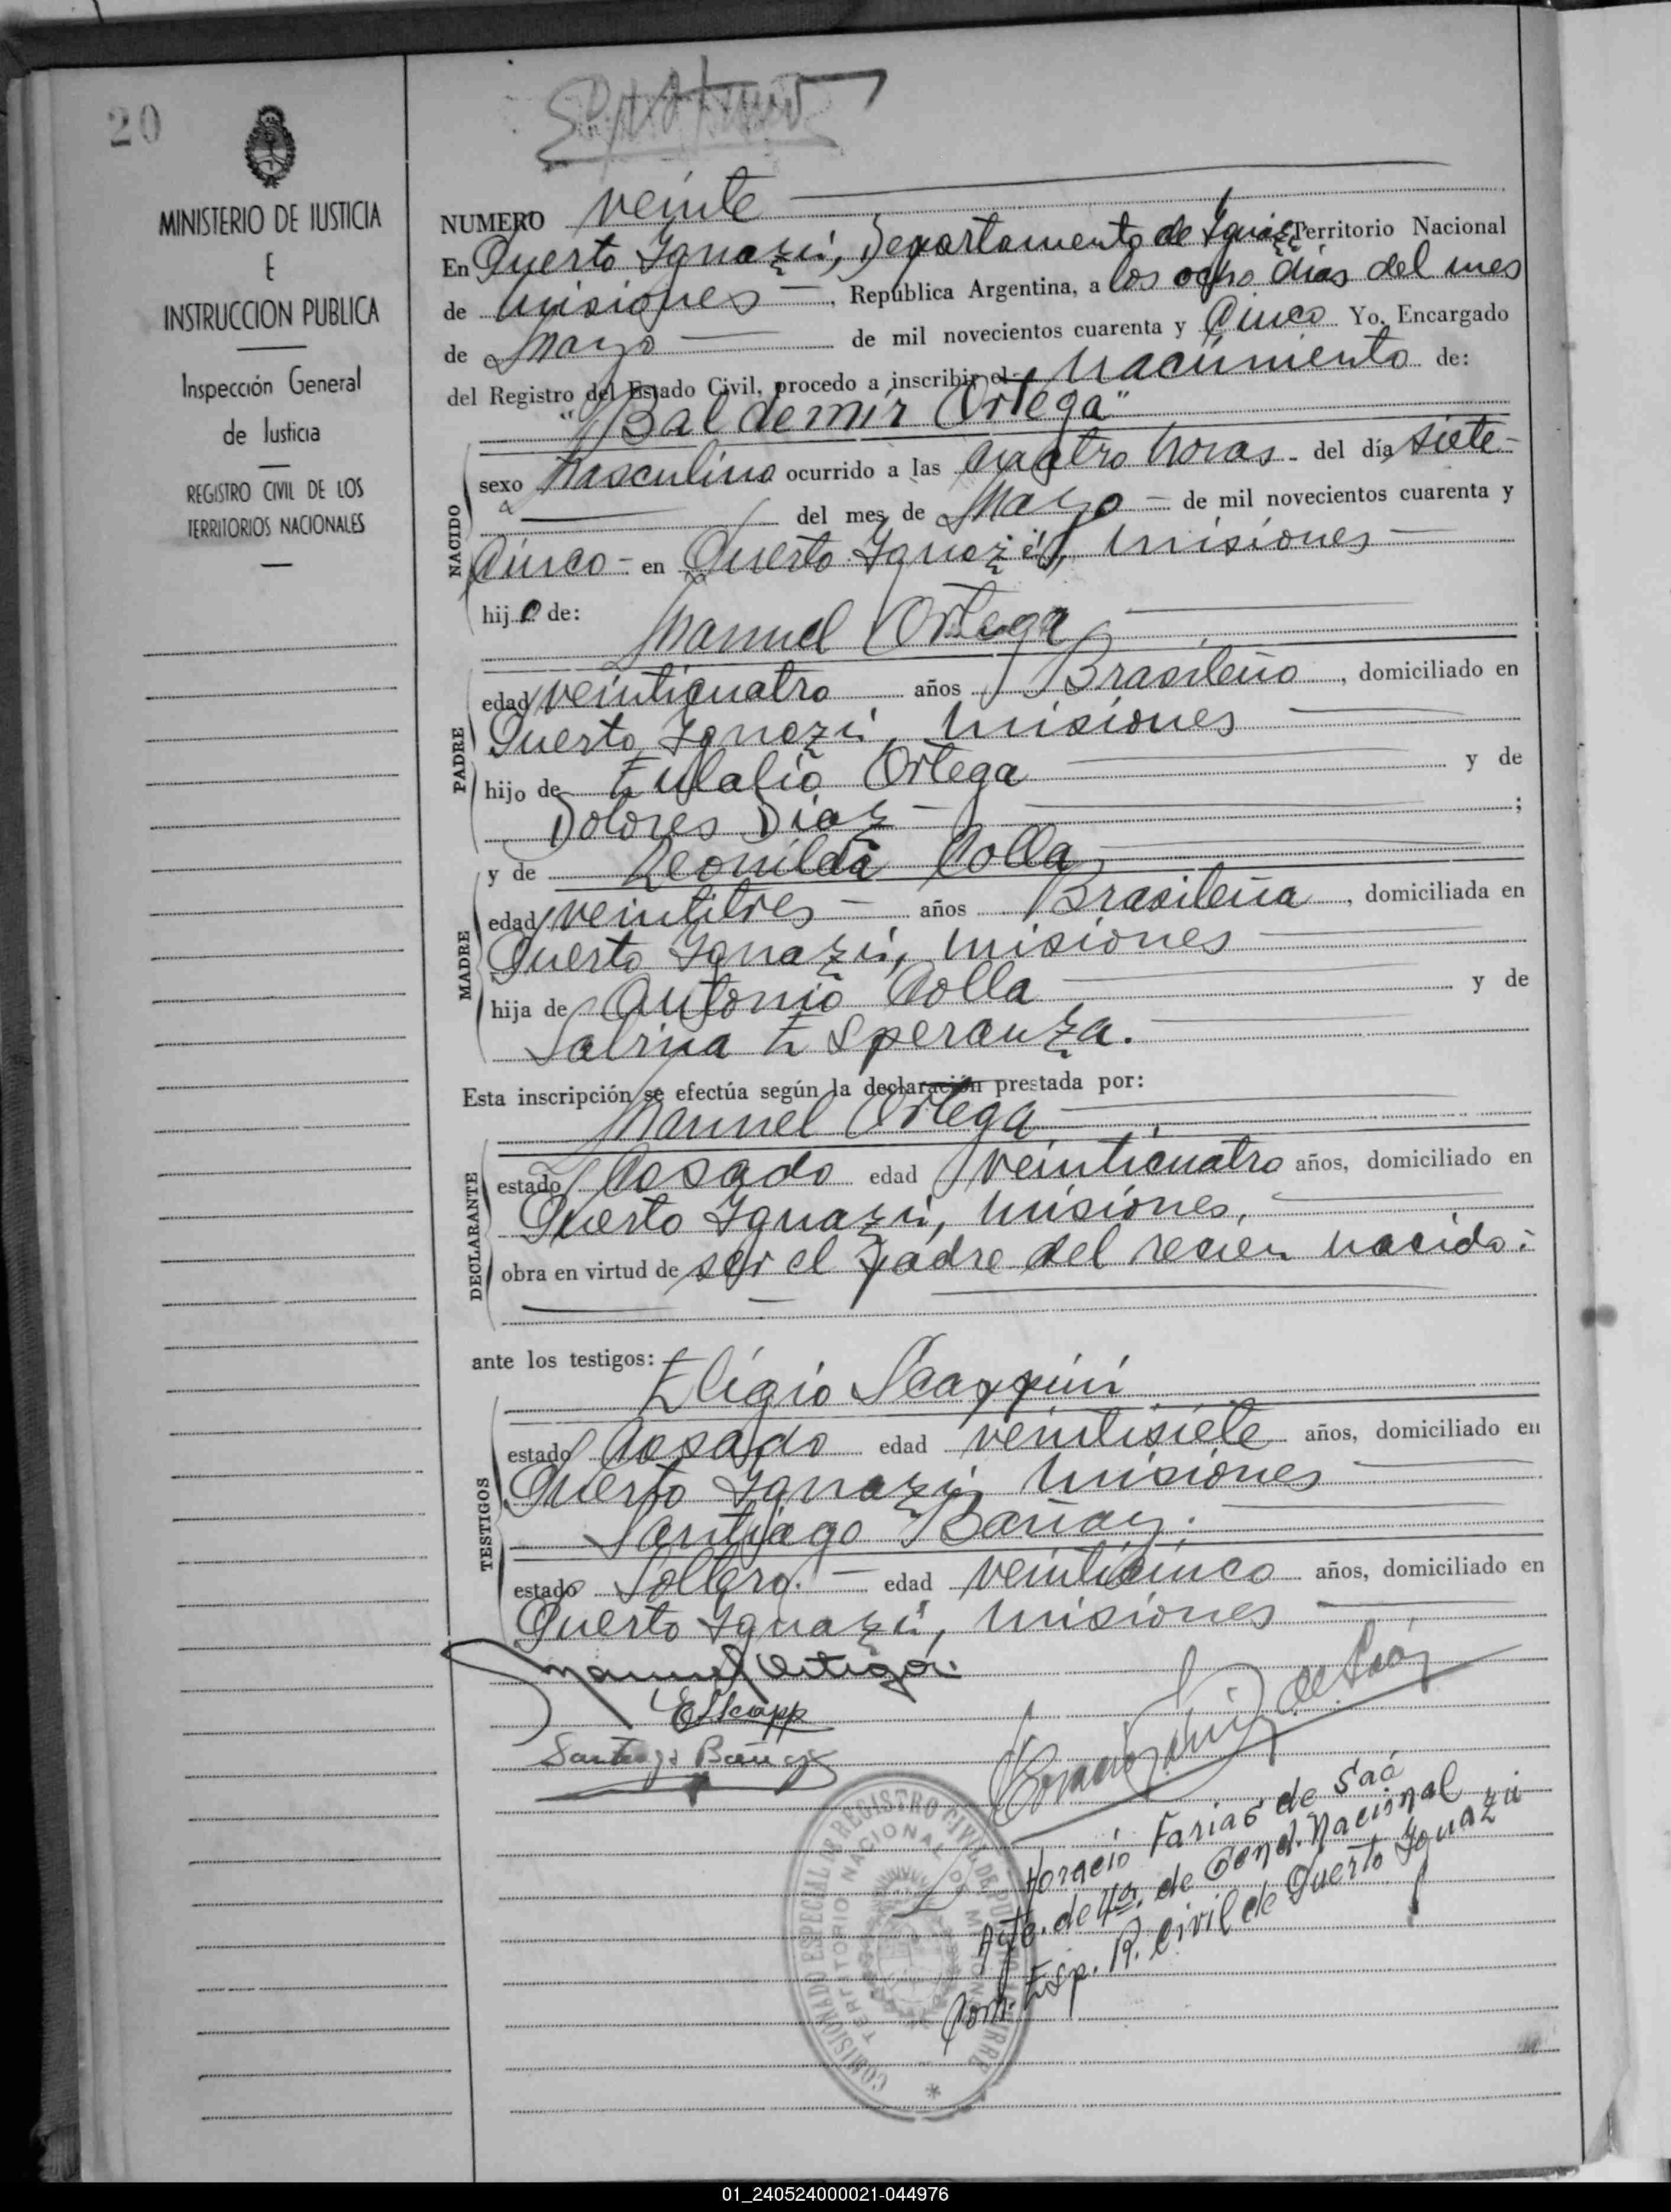 20
MINISTERIO DE JUSTICIA
E
INSTRUCCION PUBLICA
Inspección General
de Justicia
REGISTRO CIVIL DE LOS
TERRITORIOS NACIONALES
NUMERO veinte
En Puerto Iguazú, Departamento de Iguazú Territorio Nacional
de Misiones, República Argentina, a los ocho días del mes
de Mayo de mil novecientos cuarenta y Cinco Yo, Encargado
del Registro del Estado Civil, procedo a inscribir el Nacimiento de:
"Baldemir Ortega"
NACIDO
sexo Masculino ocurrido a las cuatro horas - del día siete -
del mes de Mayo - de mil novecientos cuarenta y
Cinco - en Puerto Iguazú, Misiones
hijo de:
Manuel Ortega
PADRE
edad veinticuatro años Brasileño, domiciliado en
Puerto Iguazú, Misiones
hijo de Eulalio Ortega y de
Dolores Díaz ;
MADRE
y de Leonilda Colla
edad veintitres - años Brasileña, domiciliada en
Puerto Iguazú, Misiones
hija de Antonio Colla y de
Sabina Esperanza.
Esta inscripción se efectúa según la declaración prestada por:
Manuel Ortega
DECLARANTE
estado Casado edad veinticuatro años, domiciliado en
Puerto Iguazú, Misiones,
obra en virtud de ser el padre del recien nacido.
ante los testigos:
Eligio Scappini
TESTIGOS
estado Casado edad veintisiete años, domiciliado en
Puerto Iguazú, Misiones
Santiago Bañay.
estado Soltero. - edad veinticinco años, domiciliado en
Puerto Iguazú, Misiones
Manuel Ortega
E Scapp
Santiago Bañay
Horacio Farias de Saá
Ayte. de 4ta. de Gend. Nacional
Com. Esp. R. Civil de Puerto Iguazú
COMISIONADO ESPECIAL DE REGISTRO CIVIL DE PUERTO AGUIRRE
TERRITORIO NACIONAL DE MISIONES
01_240524000021-044976